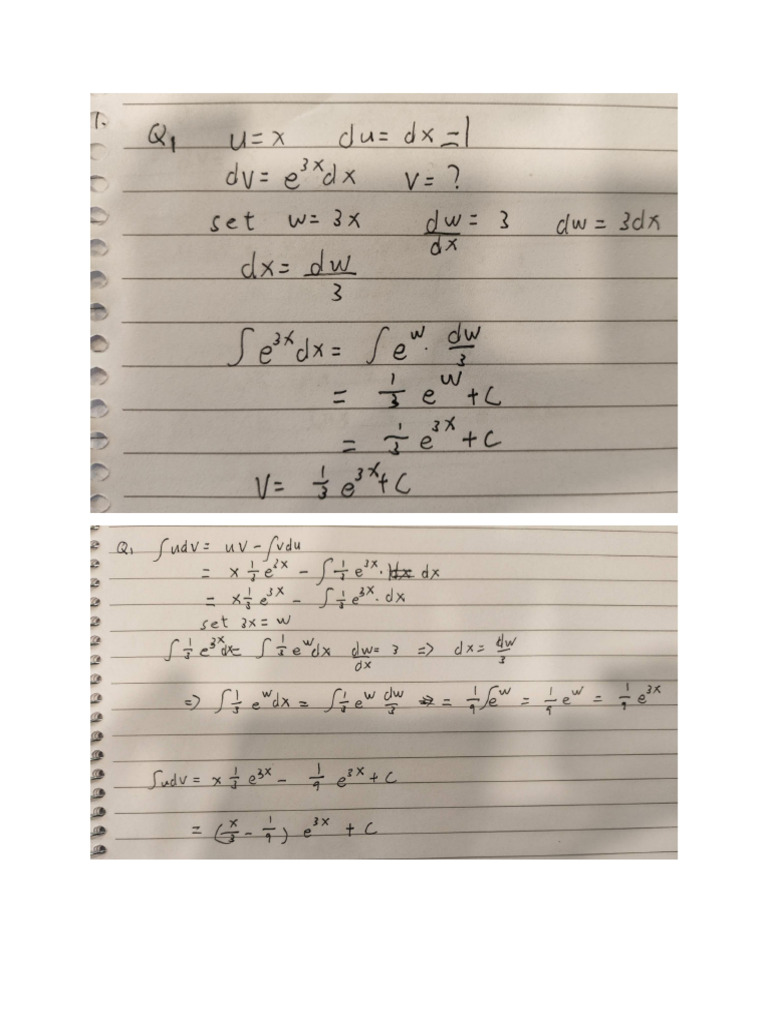 1.
Q1 u=x du= dx =1
dv= e^{3x}dx v= ?
set w= 3x \frac{dw}{dx} = 3 dw = 3dx
dx= \frac{dw}{3}
∫e^{3x}dx= ∫e^w · \frac{dw}{3}
= \frac{1}{3} e^w +C
= \frac{1}{3} e^{3x} +C
V= \frac{1}{3} e^{3x}+C
Q1 ∫udv= uv-∫vdu
= x \frac{1}{3} e^{3x} - ∫\frac{1}{3} e^{3x}· dx
= x\frac{1}{3} e^{3x} - ∫\frac{1}{3} e^{3x}· dx
set 3x = w
∫\frac{1}{3} e^{3x}dx= ∫\frac{1}{3} e^w dx \frac{dw}{dx}= 3 => dx= \frac{dw}{3}
=> ∫\frac{1}{3} e^w dx = ∫\frac{1}{3} e^w \frac{dw}{3} = \frac{1}{9}∫e^w = \frac{1}{9} e^w = \frac{1}{9} e^{3x}
∫udv = x \frac{1}{3} e^{3x} - \frac{1}{9} e^{3x} + C
= (\frac{x}{3} - \frac{1}{9}) e^{3x} + C